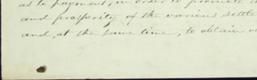 as to payment, in order to promote
and prosperity of the various settle
and, at the same time, to obtain